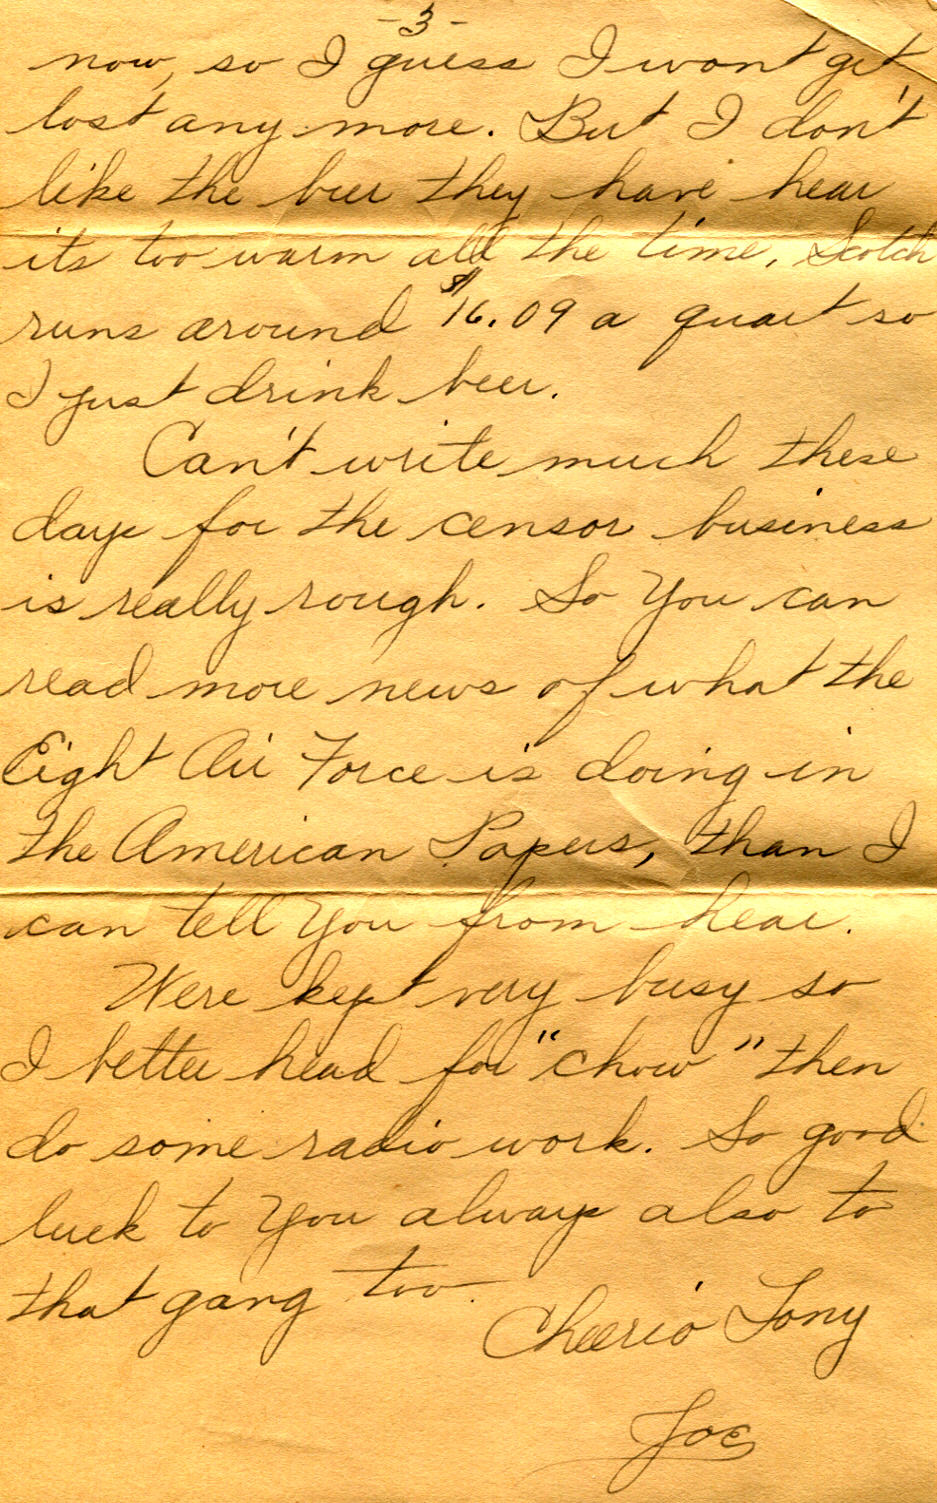 -3-
now, so I guess I wont get
lost any more. But I don't
like the beer they have hear
its too warm all the time. Scotch
runs around $16.09 a quart so
I just drink beer.
Can't write much these
days for the censor business
is really rough. So you can
read more news of what the
Eight Air Force is doing in
the American Papers, than I
can tell you from hear.
Were kept very busy so
I better head for "chow" then
do some radio work. So good
luck to you always also to
that gang too.
Cheerio Tony
Joe